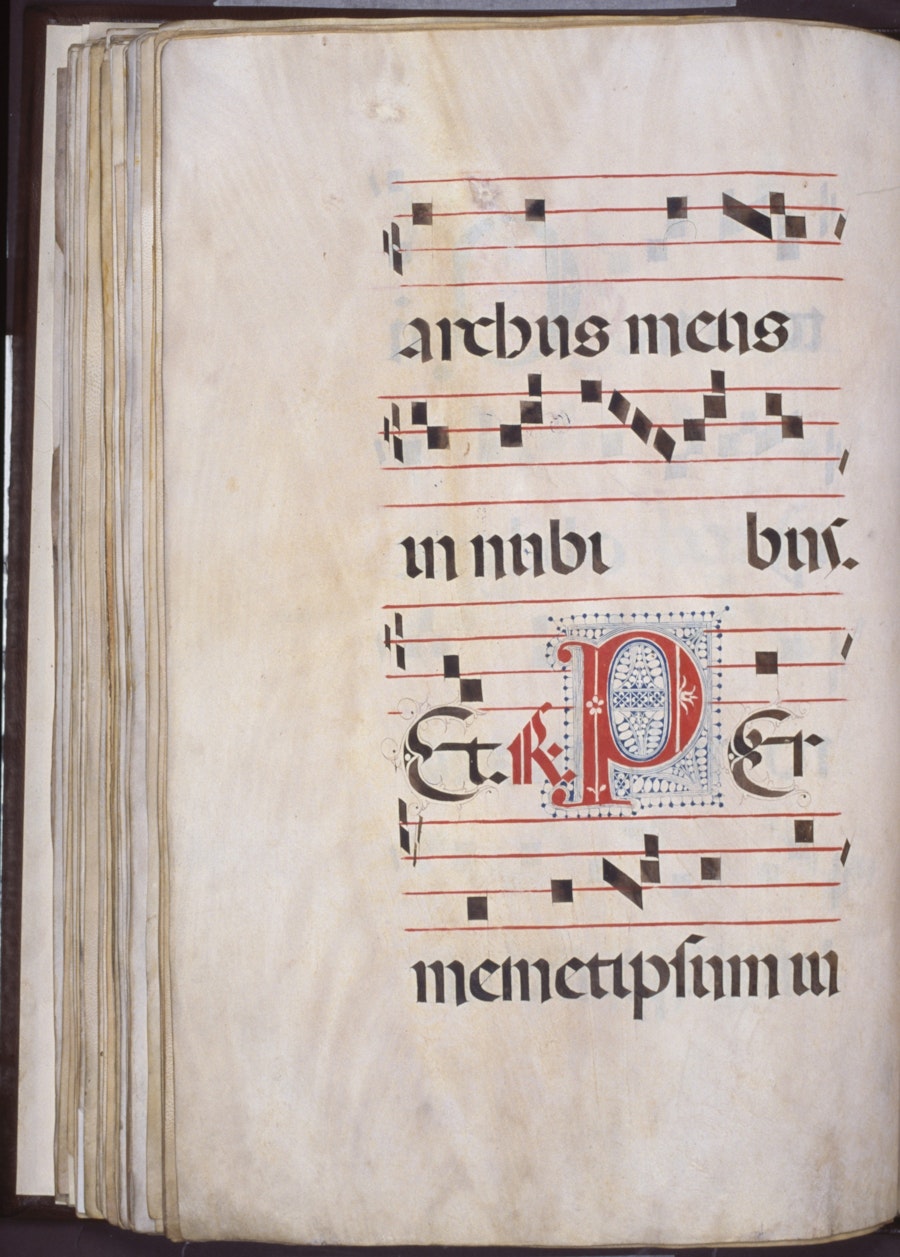 archus meus
in nubi bus.
Et. R. PEr
memetipsum in